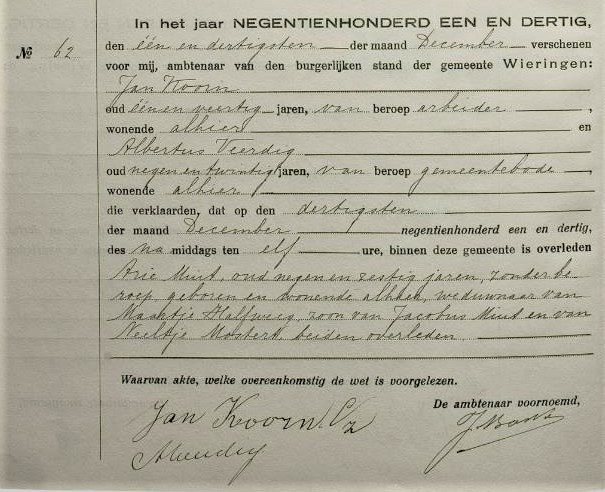 In het jaar NEGENTIENHONDERD EEN EN DERTIG,
№ 62
den één en dertigsten der maand December verschenen
voor mij, ambtenaar van den burgerlijken stand der gemeente Wieringen:
Jan Koorn
oud één en veertig jaren, van beroep arbeider,
wonende alhier en
Albertus Veerdig
oud negen en twintig jaren, van beroep gemeentebode,
wonende alhier
die verklaarden, dat op den dertigsten
der maand December negentienhonderd een en dertig,
des na middags ten elf ure, binnen deze gemeente is overleden
Arie Mint, oud negen en zestig jaren, zonder be-
roep, geboren en wonende alhier, weduwnaar van
Maartje Halfweeg, zoon van Jacobus Mint en van
Neeltje Mostert, beiden overleden
Waarvan akte, welke overeenkomstig de wet is voorgelezen.
De ambtenaar voornoemd,
Jan Koorn Cz